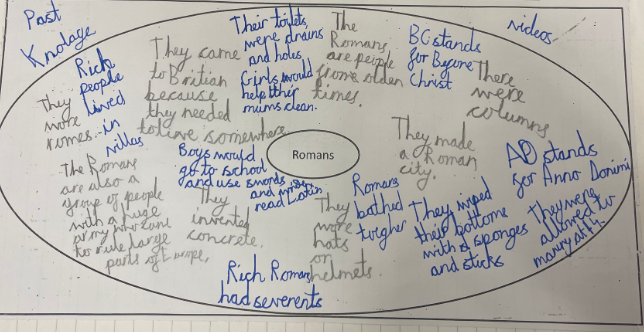 Past
Knolage
videos
Rich
people
lived
in
villas
They came
to British
because
they needed
to live somewhere
Their toilets,
were drains
and holes
Girls would
help ther
mums clean.
The
Romans
are people
frome olden
times.
BC stands
for Before
Christ
There
were
columns
They
wore
They made
a Roman
city.
AD stands
for Anno Domini
Romans
The Romans
are also a
group of people
with a huge
army who
to rule large
parts of
Boys would
go to school
and use swords
and
read Latin
They
invented
concrete.
They
wore
hats
or
helmets.
Romans
bathed
togher
They wiped
their bottome
with a sponges
and sticks
They were
allowed to
marry at
Rich Romans
had severents